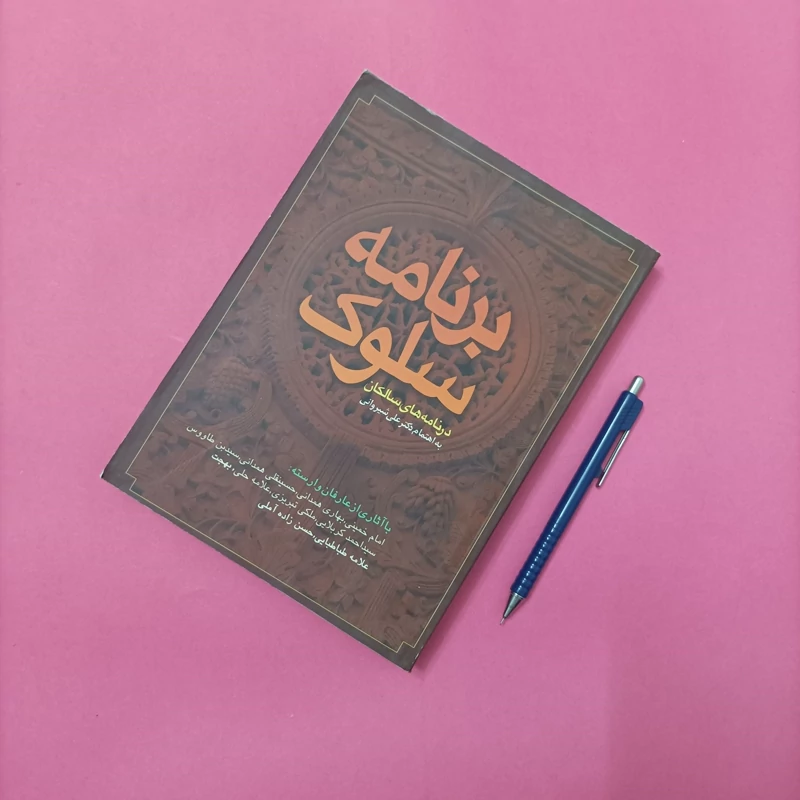 برنامه
سلوک
در نامه‌های سالکان
به اهتمام دکتر علی شیروانی
با آثاری از عارفان وارسته:
امام خمینی، بهاری همدانی، حسینقلی همدانی، سیدبن طاووس
سیداحمد کربلایی، ملکی تبریزی، علامه حلی، بهجت
علامه طباطبایی، حسن زاده آملی